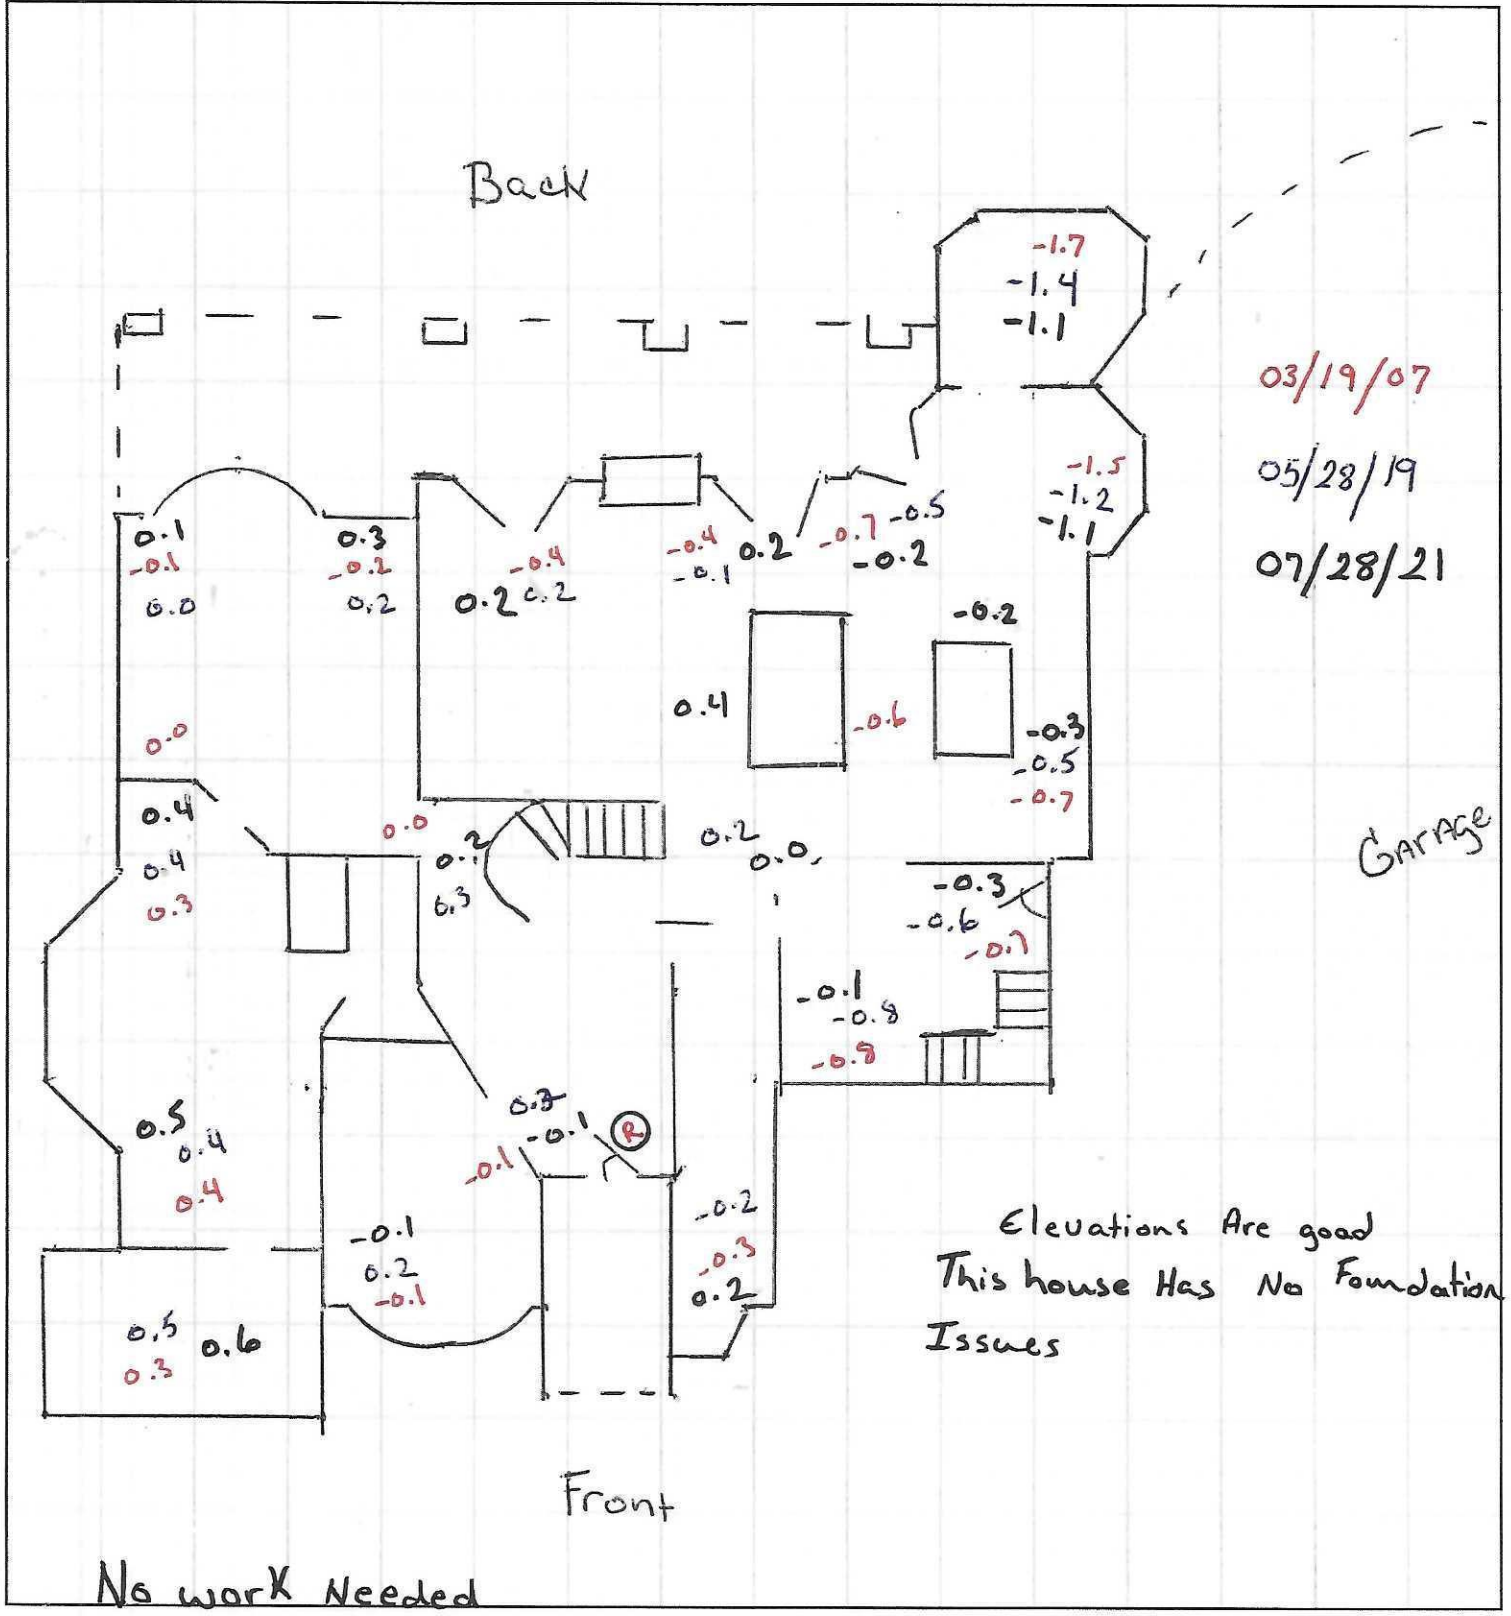 Back
-1.7
-1.4
-1.1
03/19/07
-1.5
05/28/19
-1.2
-1.1
07/28/21
0.1
-0.1
0.0
0.3
-0.2
0.2
-0.4
0.2 0.2
-0.4 0.2
-0.1
-0.7 -0.5
-0.2
-0.2
0.4
-0.6
-0.3
-0.5
-0.7
0.0
0.4
0.4
0.3
0.0
0.2
0.3
0.2
0.0
Garage
-0.3
-0.6
-0.7
-0.1
-0.8
-0.8
-0.1
R
-0.1
0.5
0.4
0.4
-0.1
0.2
-0.1
-0.2
-0.3
0.2
Elevations Are good
This house Has No Foundation
Issues
0.5 0.6
0.3
Front
No work Needed